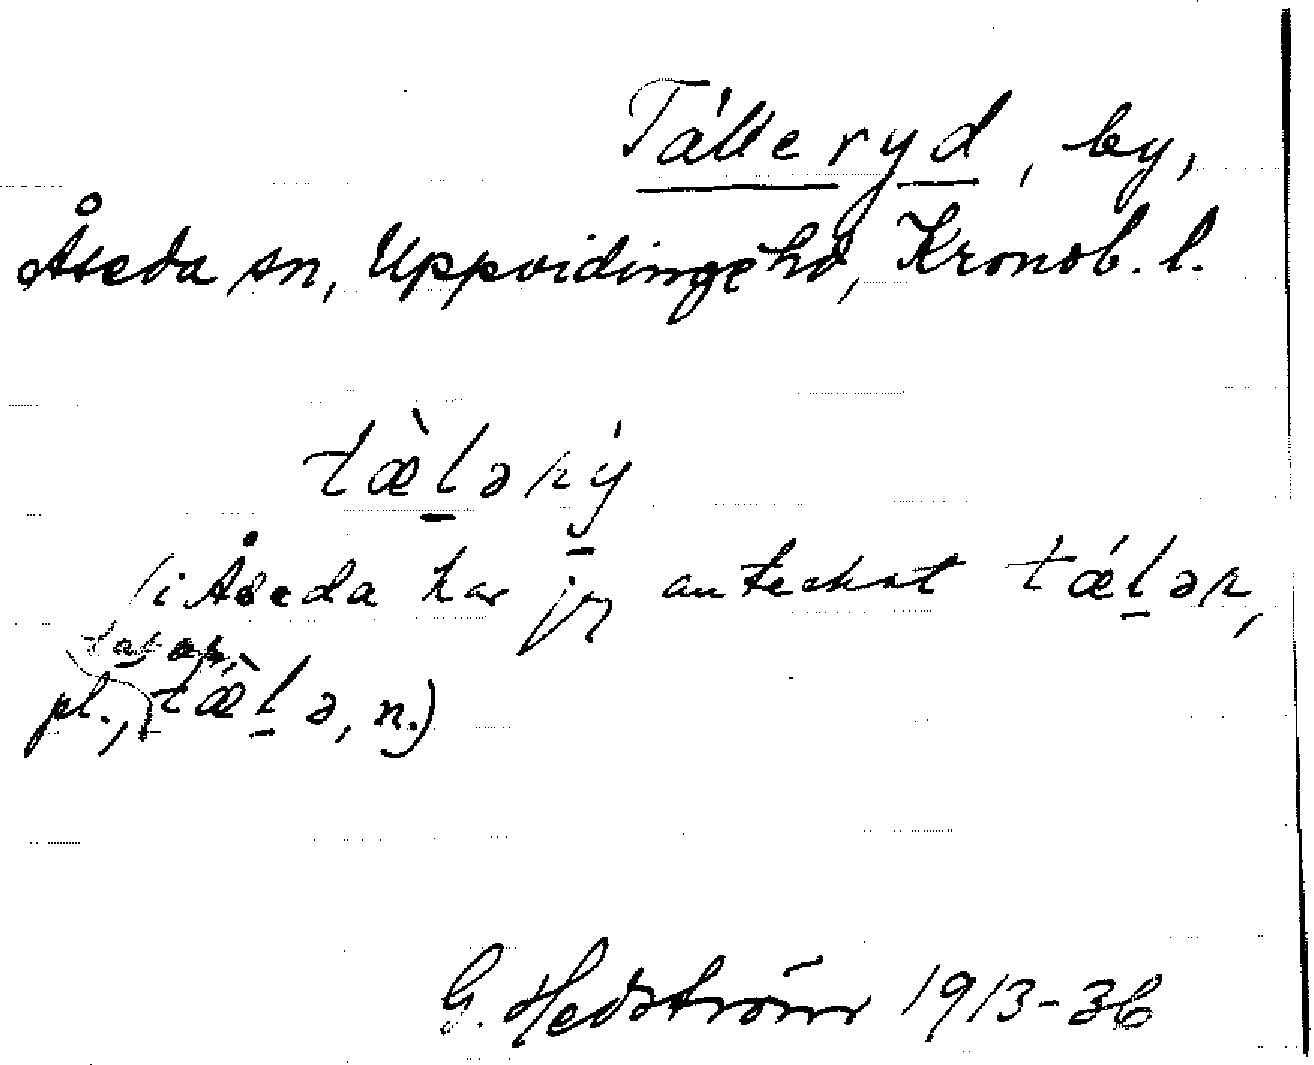 Tälleryd, by,
Åseda sn, Uppvidinge hd, Kronob. l.
tæ̀l̠ərý̠
(i Åseda har jag antecknat tǽl̠ər,
pl., tæ̀l̠ə, n.)
G. Hedström 1913-36